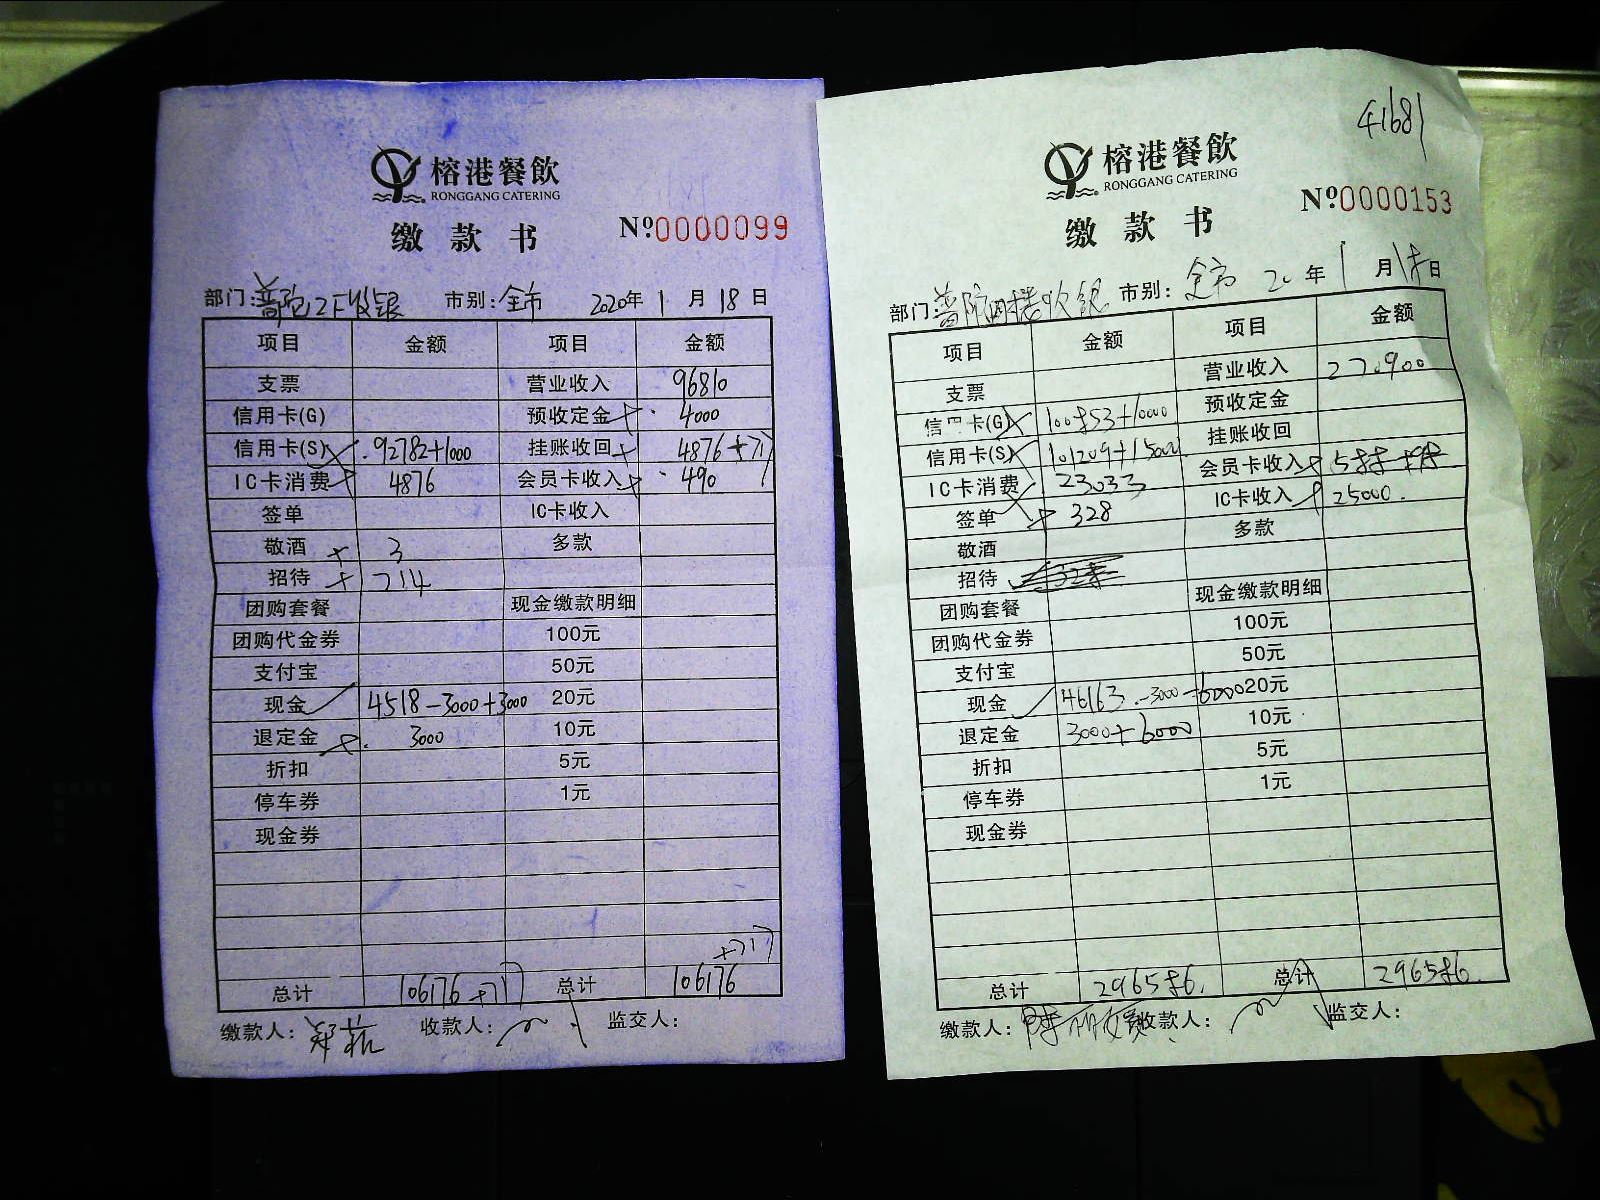 榕港餐飲
RONGGANG CATERING
缴款书 Nº0000099
部门:普陀2F收银 市别:全市 2020年1月18日
项目 金额 项目 金额
支票 营业收入 96810
信用卡(G) 预收定金 4000
信用卡(S) 92782+1000 挂账收回 4876+717
IC卡消费 4876 会员卡收入 490
签单 IC卡收入
敬酒 3 多款
招待 714
团购套餐 现金缴款明细
团购代金券 100元
支付宝 50元
现金 4518-3000+3000 20元
退定金 3000 10元
折扣 5元
停车券 1元
现金券
+717
总计 106176+717 总计 106176
缴款人: 收款人: 监交人:
41681
榕港餐飲
RONGGANG CATERING
缴款书 Nº0000153
部门:普陀四楼收银 市别:全市 20年1月18日
项目 金额 项目 金额
支票 营业收入 270900
信用卡(G) 100853+10000 预收定金
信用卡(S) 101209+15000 挂账收回
IC卡消费 23033 会员卡收入
签单 328 IC卡收入 25000.
敬酒 多款
招待
团购套餐 现金缴款明细
团购代金券 100元
支付宝 50元
现金 46163-3000-6000 20元
退定金 3000+6000 10元
折扣 5元
停车券 1元
现金券
总计 296586. 总计 296586.
缴款人: 收款人: 监交人: